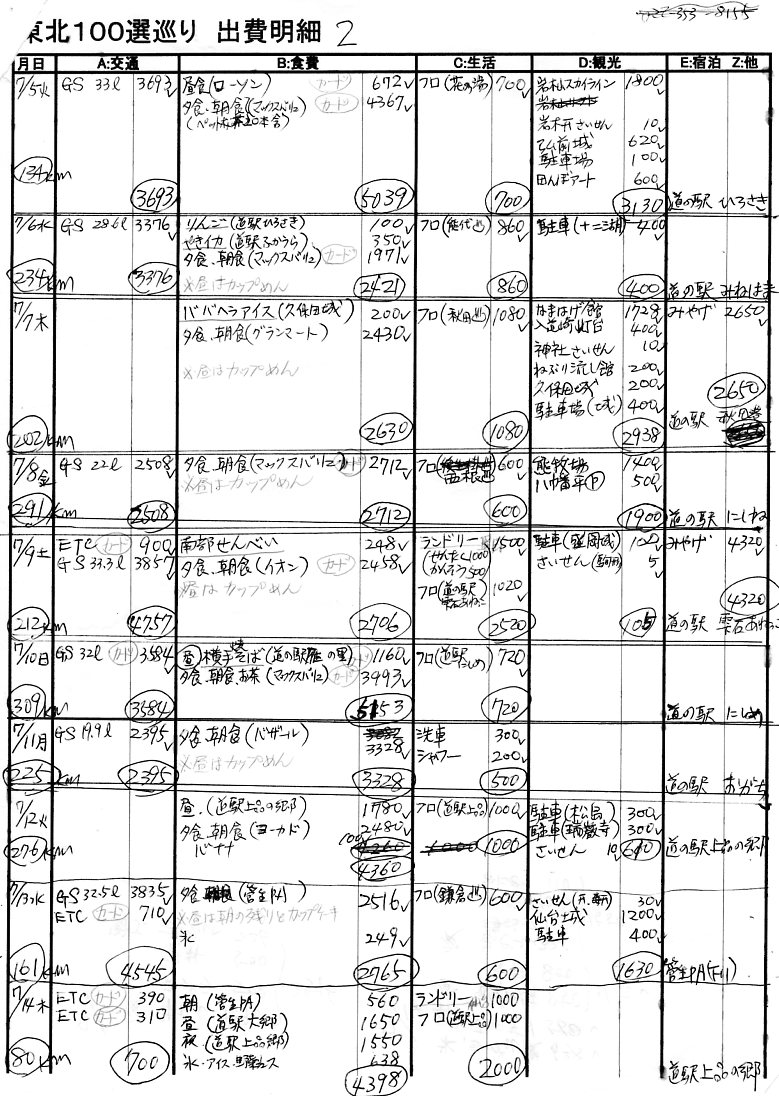 東北100選巡り 出費明細 2
月日 A:交通 B:食費 C:生活 D:観光 E:宿泊 Z:他
7/5火 GS 33ℓ 3693 昼食(ローソン) カード 672 フロ(花の湯) 700 岩木山スカイライン 1800
夕食、朝食(マックスバリュ) カード 4367
岩木山さいせん 10
弘前城 620
駐車場 100
田んぼアート 600
134km 3693 5039 700 3130 道の駅 ひろさき
7/6水 GS 28.6ℓ 3376 りんご(道駅ひろさき) 100 フロ(能代山) 860 駐車(十二湖) 400
やきイカ(道駅ふかうら) 350
夕食、朝食(マックスバリュ) カード 1971
※昼はカップめん
234km 3376 2421 860 400 道の駅 みねはま
7/7木 ババヘラアイス(久保田城) 200 フロ(秋田山) 1080 なまはげ館 1728 みやげ 2650
夕食、朝食(グランマート) 2430 入道崎灯台 400
神社さいせん 10
※昼はカップめん ねぶり流し館 200
久保田城 200 2650
駐車場(城) 400
202km 2630 1080 2938 道の駅 秋田港
7/8金 GS 22ℓ 2508 夕食、朝食(マックスバリュ) カード 2712 フロ 600 熊牧場 1400
※昼はカップめん 八幡平Ⓟ 500
291km 2508 2712 600 1900 道の駅 にしね
7/9土 ETC カード 900 南部せんべい 248 ランドリー 1500 駐車(盛岡城) 100 みやげ 4320
GS 33.3ℓ 3857 夕食、朝食(イオン) カード 2458 せんたく1000 さいせん 5
昼はカップめん かんそう500
フロ(道の駅雫石あねっこ) 1020 4320
212km 4757 2706 2520 105 道の駅 雫石あねっこ
7/10日 GS 32ℓ カード 3584 昼 横手焼そば(道の駅雁の里) カード 1160 フロ(道駅にしめ) 720
夕食、朝食、お茶(マックスバリュ) カード 3993
309km 3584 5153 720 道の駅 にしめ
7/11月 GS 19.9ℓ 2395 夕食、朝食(バザール) 3328 洗車 300
※昼はカップめん シャワー 200
225km 2395 3328 500 道の駅 おがち
7/12火 昼.(道駅上品の郷) 1780 フロ(道駅上品) 1000 駐車(松島) 300
夕食、朝食(ヨーカド) 2480 駐車(瑞巌寺) 300
バナナ 100 さいせん 10
276km 4360 1000 610 道の駅上品の郷
7/13水 GS 32.5ℓ 3835 夕食(菅生PA) 2516 フロ(鎌倉山) 600 さいせん 30
ETC カード 710 ※昼は朝の残りとカップケーキ 仙台城 1200
氷 249 駐車 400
161km 4545 2765 600 1630 菅生PA(下り)
7/14木 ETC カード 390 朝(菅生PA) 560 ランドリー 1000
ETC カード 310 昼(道駅大郷) 1650 フロ(道駅上品) 1000
夜(道駅上品の郷) 1550
氷・アイス 638
80km 700 4398 2000 道駅上品の郷